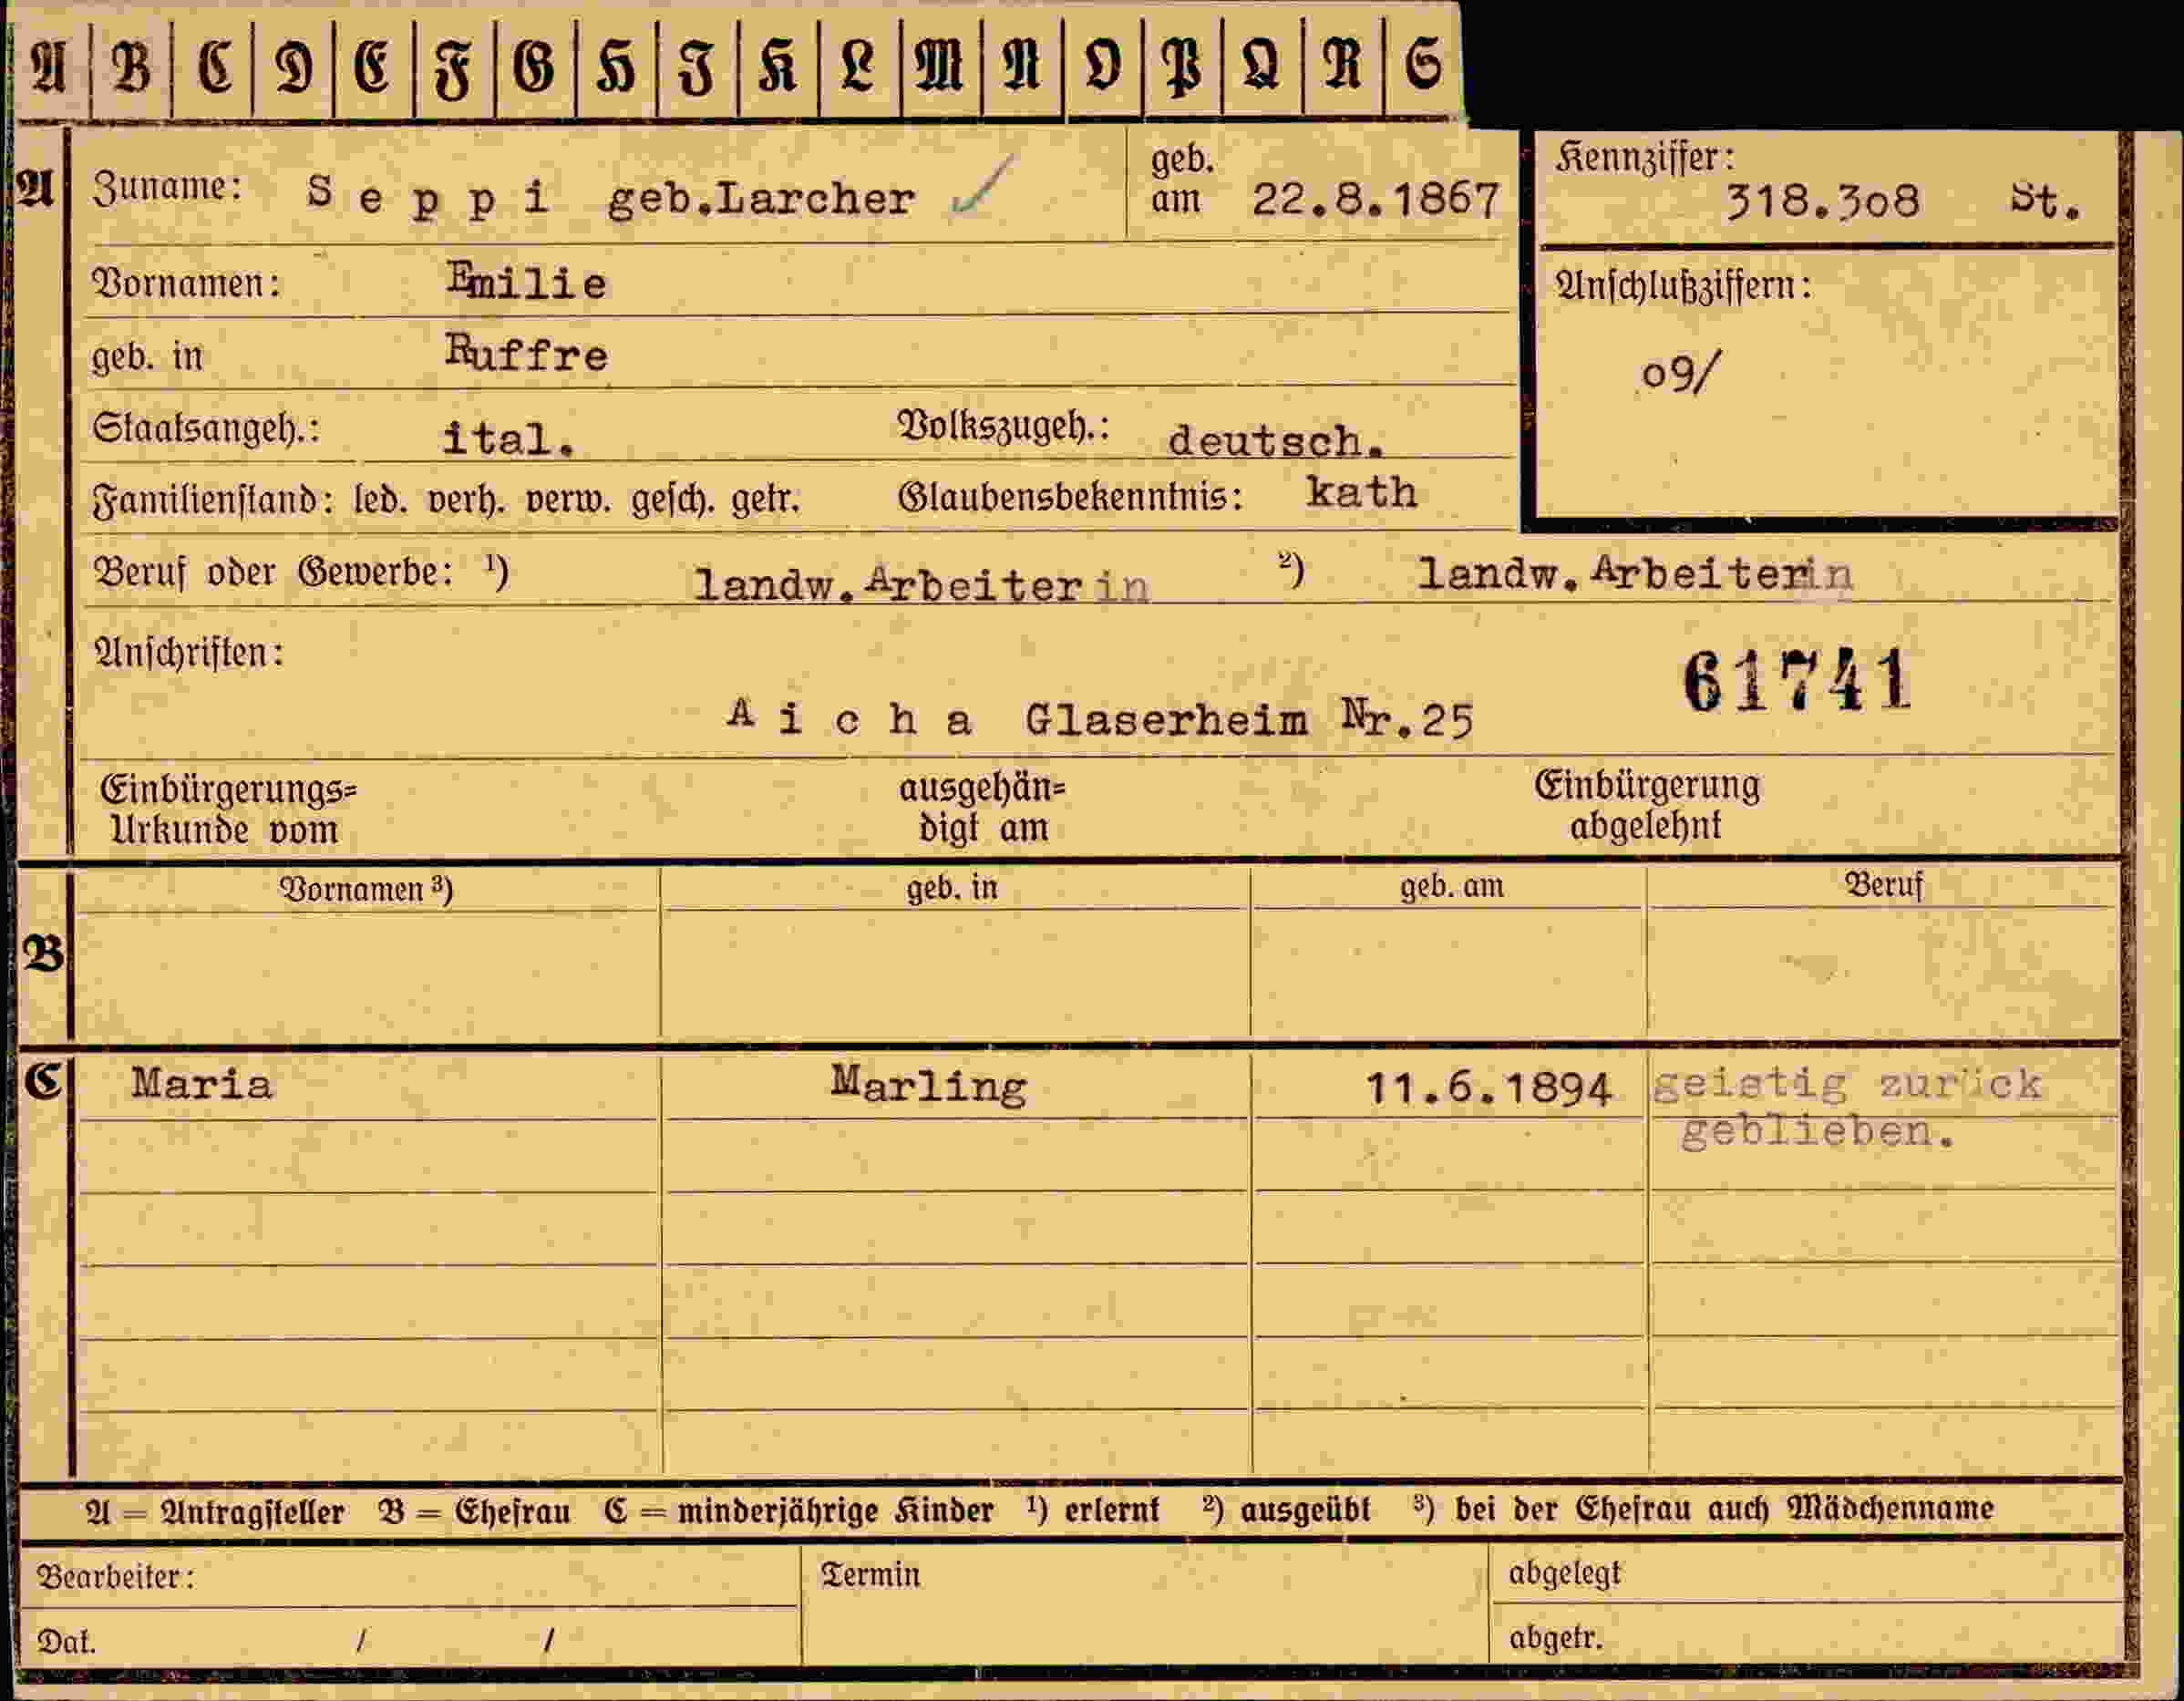 A B C D E F G H I K L M N O P Q R S
A Zuname: Seppi geb.Larcher ✓ geb. am 22.8.1867
Kennziffer: 318.3o8 St.
Vornamen: Emilie
Anschlußziffern:
geb. in Ruffre
o9/
Staatsangeh.: ital. Volkszugeh.: deutsch.
Familienstand: led. verh. verw. gesch. getr. Glaubensbekenntnis: kath
Beruf oder Gewerbe: ¹) landw.Arbeiterin ²) landw.Arbeiterin
Anschriften:
61741
Aicha Glaserheim Nr.25
Einbürgerungs= ausgehän= Einbürgerung
Urkunde vom digt am abgelehnt
Vornamen ³) geb. in geb. am Beruf
B
C Maria Marling 11.6.1894 geistig zurück
geblieben.
A = Antragsteller B = Ehefrau C = minderjährige Kinder ¹) erlernt ²) ausgeübt ³) bei der Ehefrau auch Mädchenname
Bearbeiter: Termin abgelegt
Dat. / / abgetr.